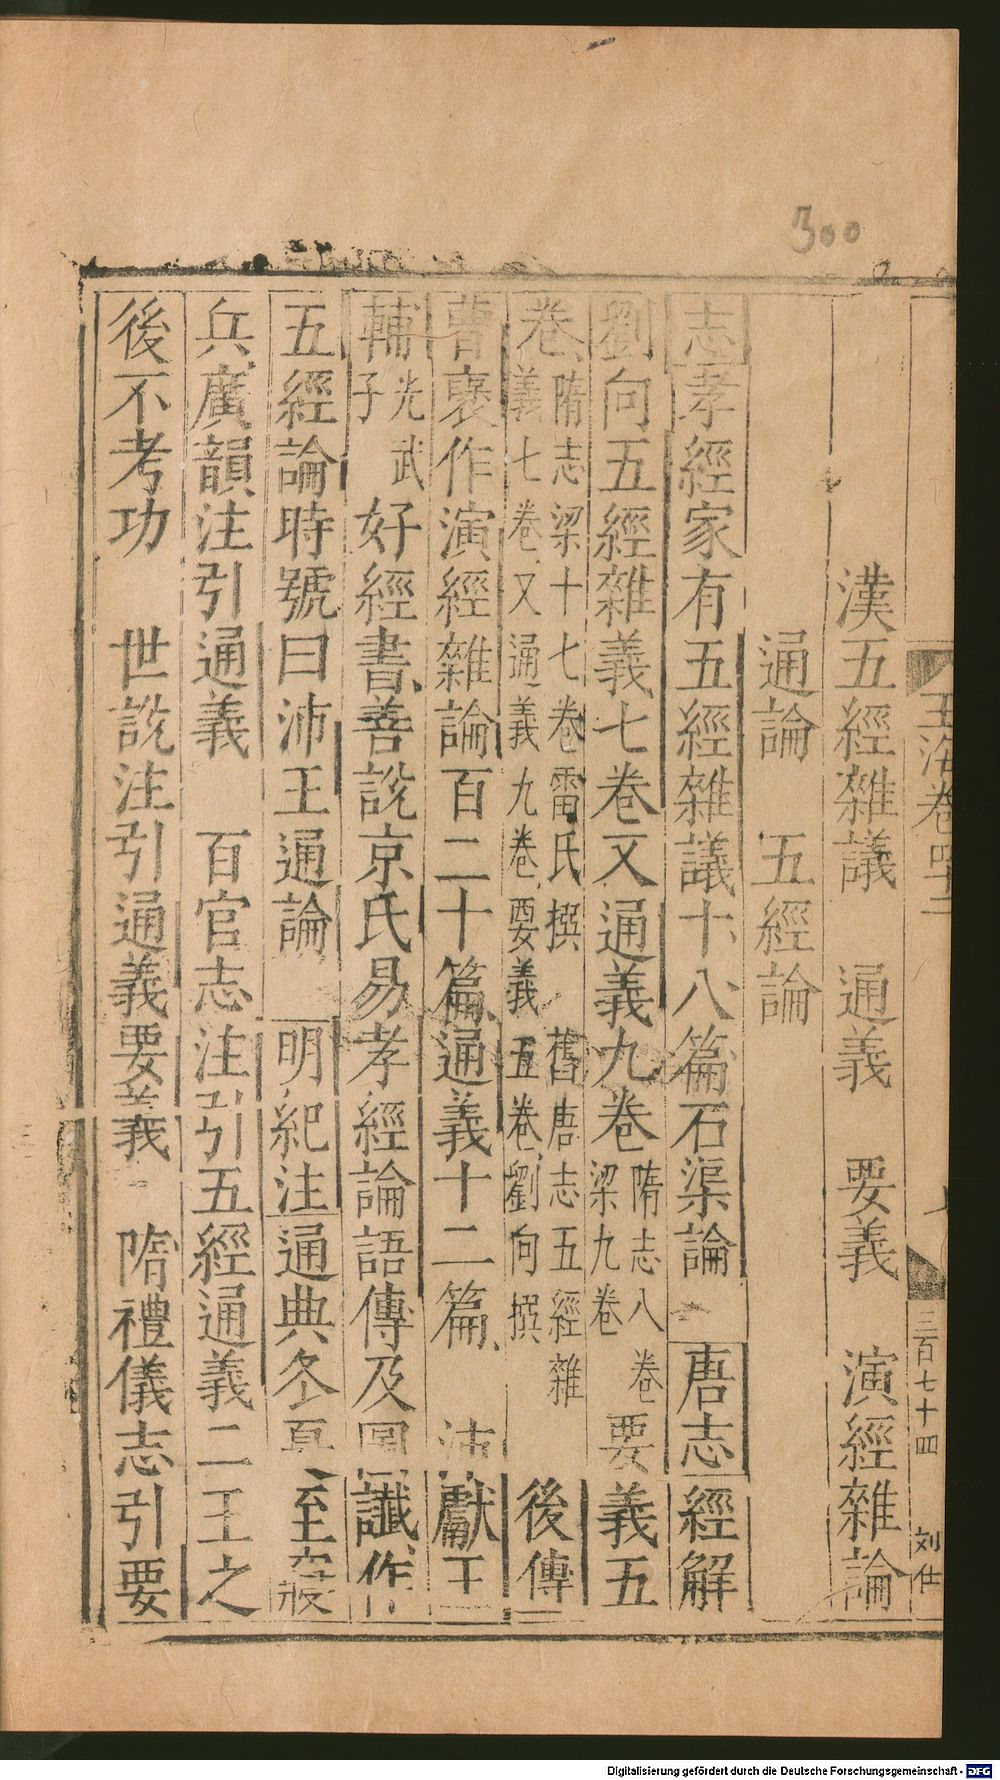 300
玉海卷四十二
三百七十四
刘仕
漢五經雜議 通義 要義 演經雜論
通論 五經論
志孝經家有五經雜議十八篇石渠論 唐志經解
劉向五經雜義七卷又通義九卷隋志八卷梁九卷要義五
卷隋志梁十七卷雷氏撰 舊唐志五經雜義七卷又通義九卷要義五卷劉向撰 後傳
曹襃作演經雜論百二十篇通義十二篇 沛獻王
輔光武子好經書善說京氏易孝經論語傳及圖讖作
五經論時號曰沛王通論 明紀注通典冬夏至寢
兵廣韻注引通義 百官志注引五經通義二王之
後不考功 世說注引通義要義 隋禮儀志引要
Digitalisierung gefördert durch die Deutsche Forschungsgemeinschaft - DFG